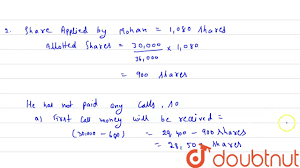 2. Share Applied by Mohan = 1,080 shares
Allotted Shares = 30,000 / 36,000 × 1,080
= 900 shares
He has not paid any calls, so
a) First call money will be received =
(30,000 - 600) = 29,400 - 900 shares
= 28,500 shares
doubtnut